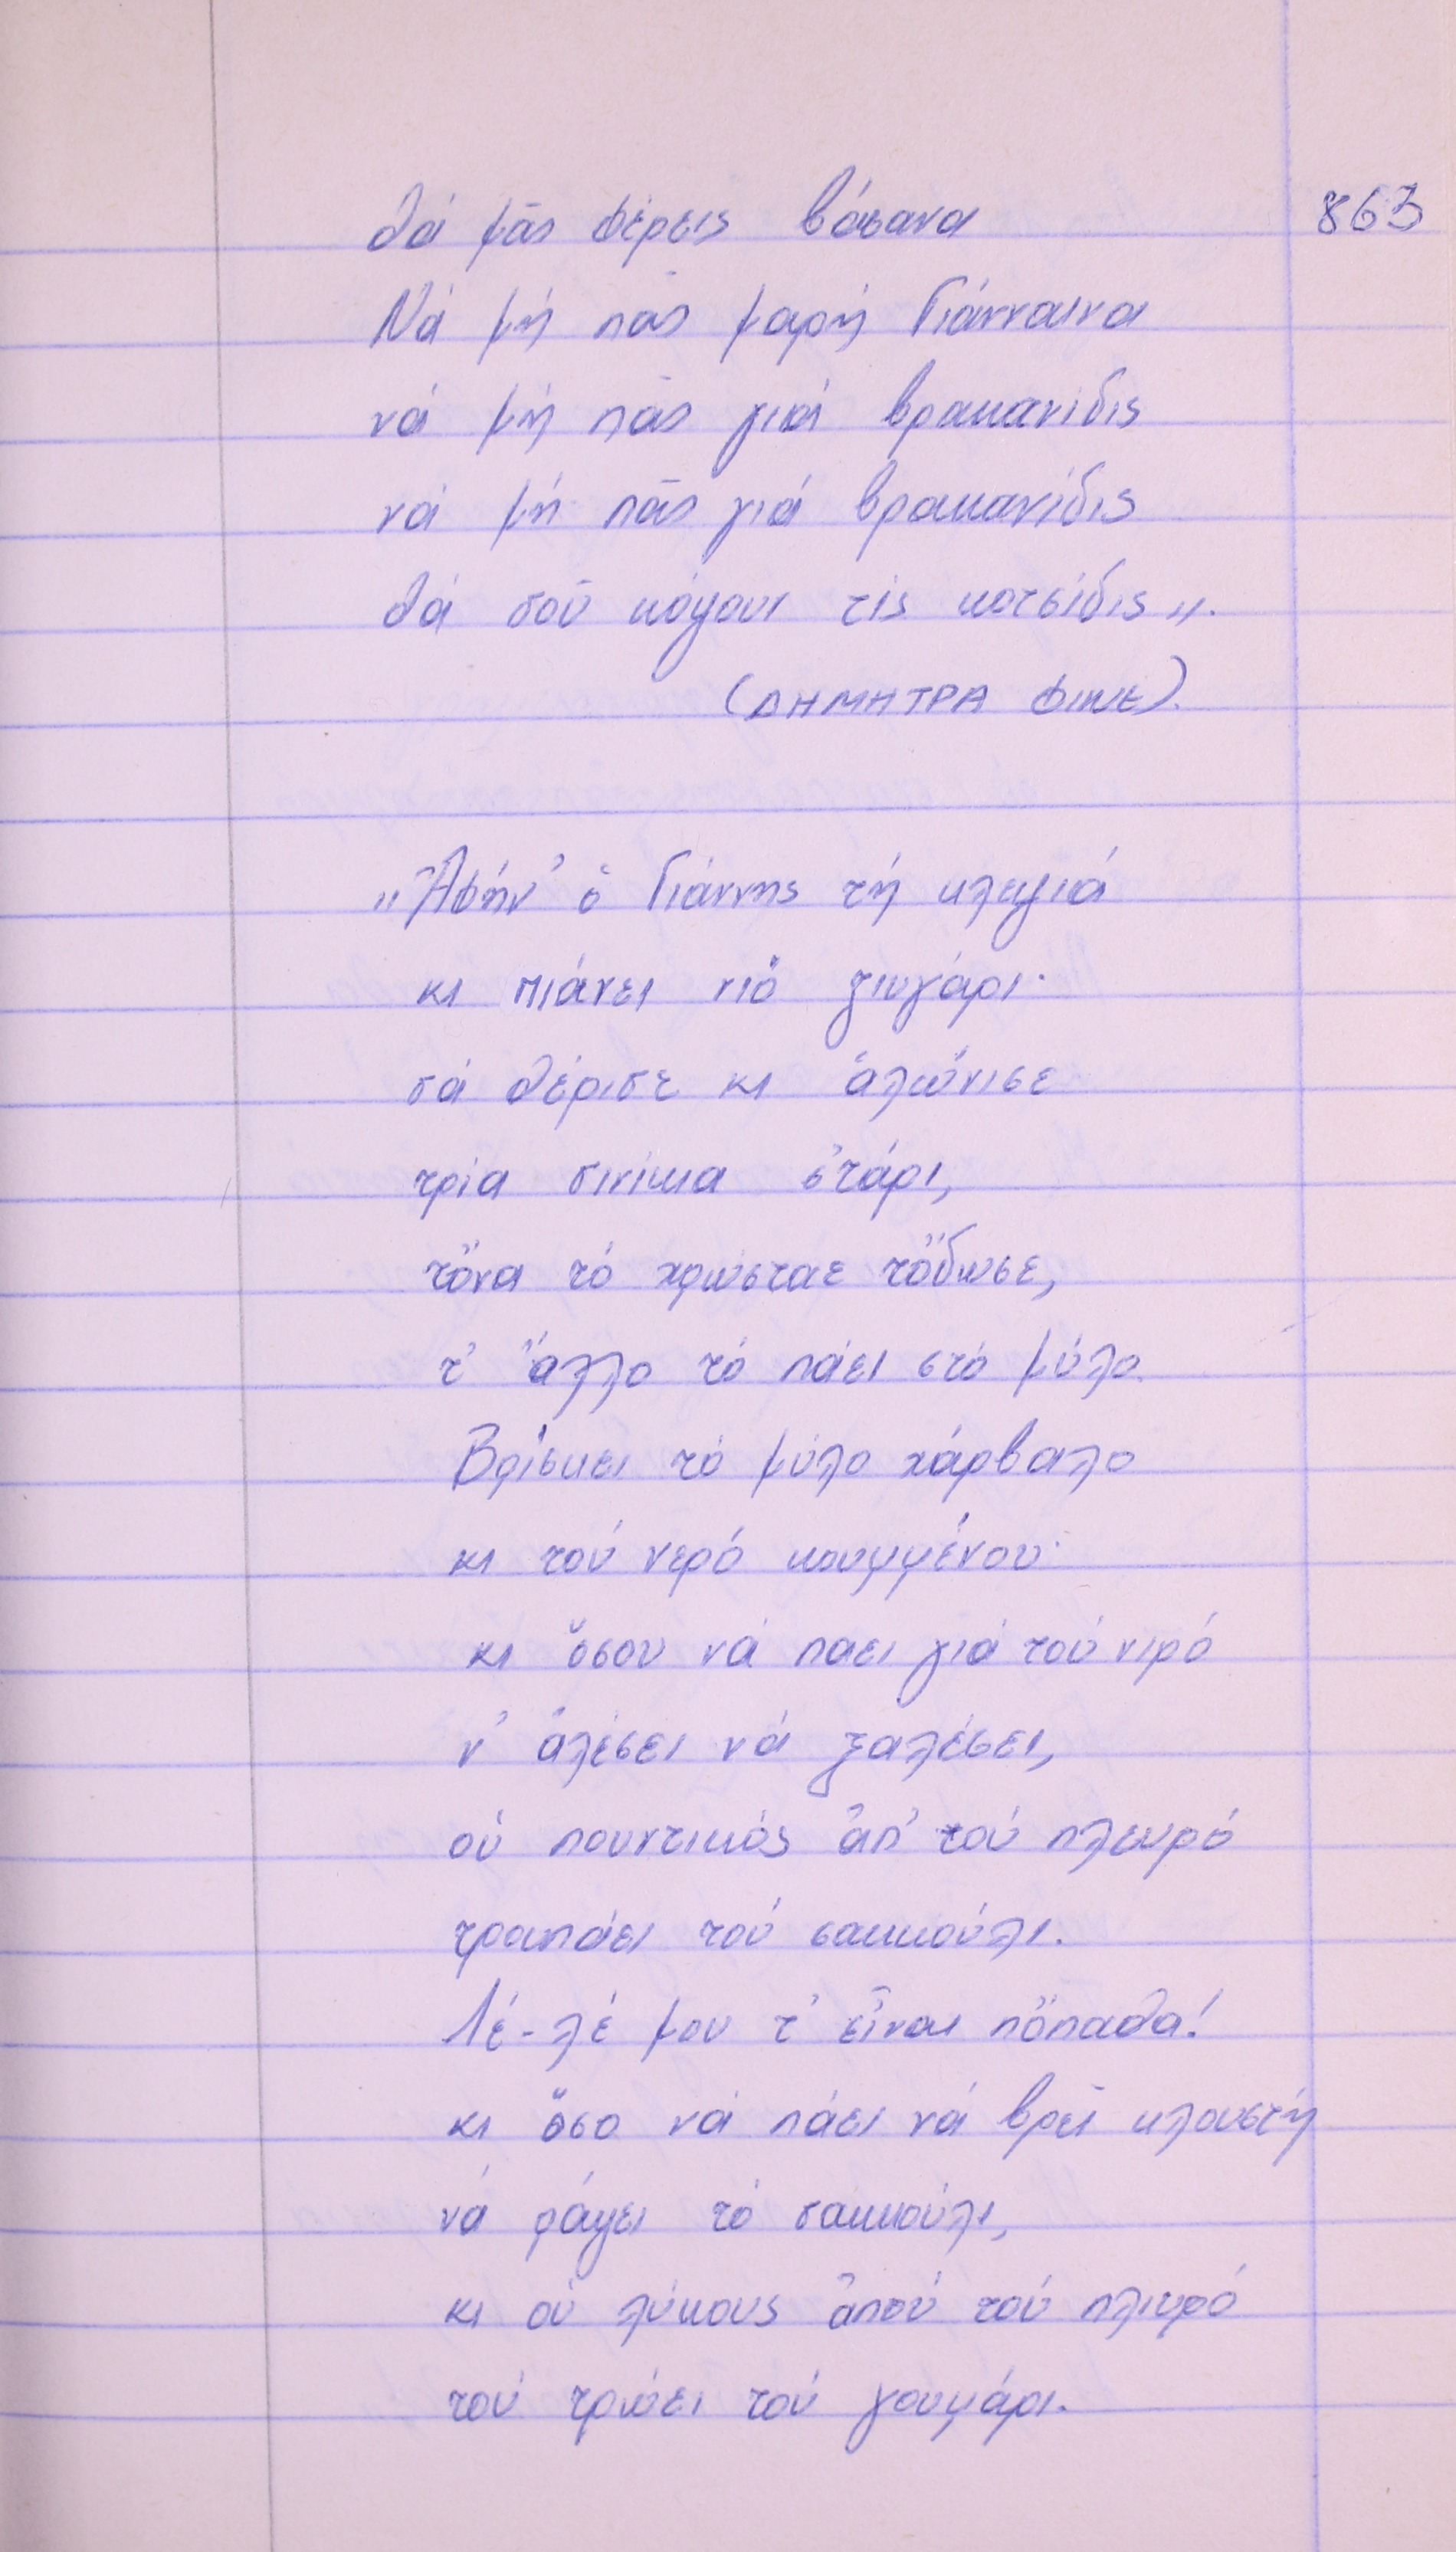 863
θά μᾶς φέρεις βάσανα
Νά μή πᾶς μαρή Γιάνναινα
νά μή πᾶς γιά βρακανίδις
νά μή πᾶς γιά βρακανίδις
θά σοῦ κόψουν τίς κοτσίδις".
(ΔΗΜΗΤΡΑ ΦΙΚΕ).
"Ἀφήν' ὁ Γιάννης τή κλεψιά
κι πιάνει νιό ζιυγάρι·
σά θέρισε κι ἁλώνισε
τρία σινίκια στάρι,
τὄνα τό χρώσταε τὄδωσε,
τ' ἄλλο τό πάει στό μύλο.
Βρίσκει τό μύλο χάρβαλο
κι τού νερό κουμμένου·
κι ὅσου νά πάει γιά τού νιρό
ν' ἀλέσει νά ξαλέσει,
οὑ πουντικός ἀπ' τού πλευρό
τρυπάει τού σακκούλι.
Λέ-λέ μου τ' εἶναι πὄπαθα!
κι ὅσο νά πάει νά βρεῖ κλουστή
νά ράψει τό σακκούλι,
κι οὑ λύκους ἀπού τού πλιυρό
τού τρώει τού γουμάρι.